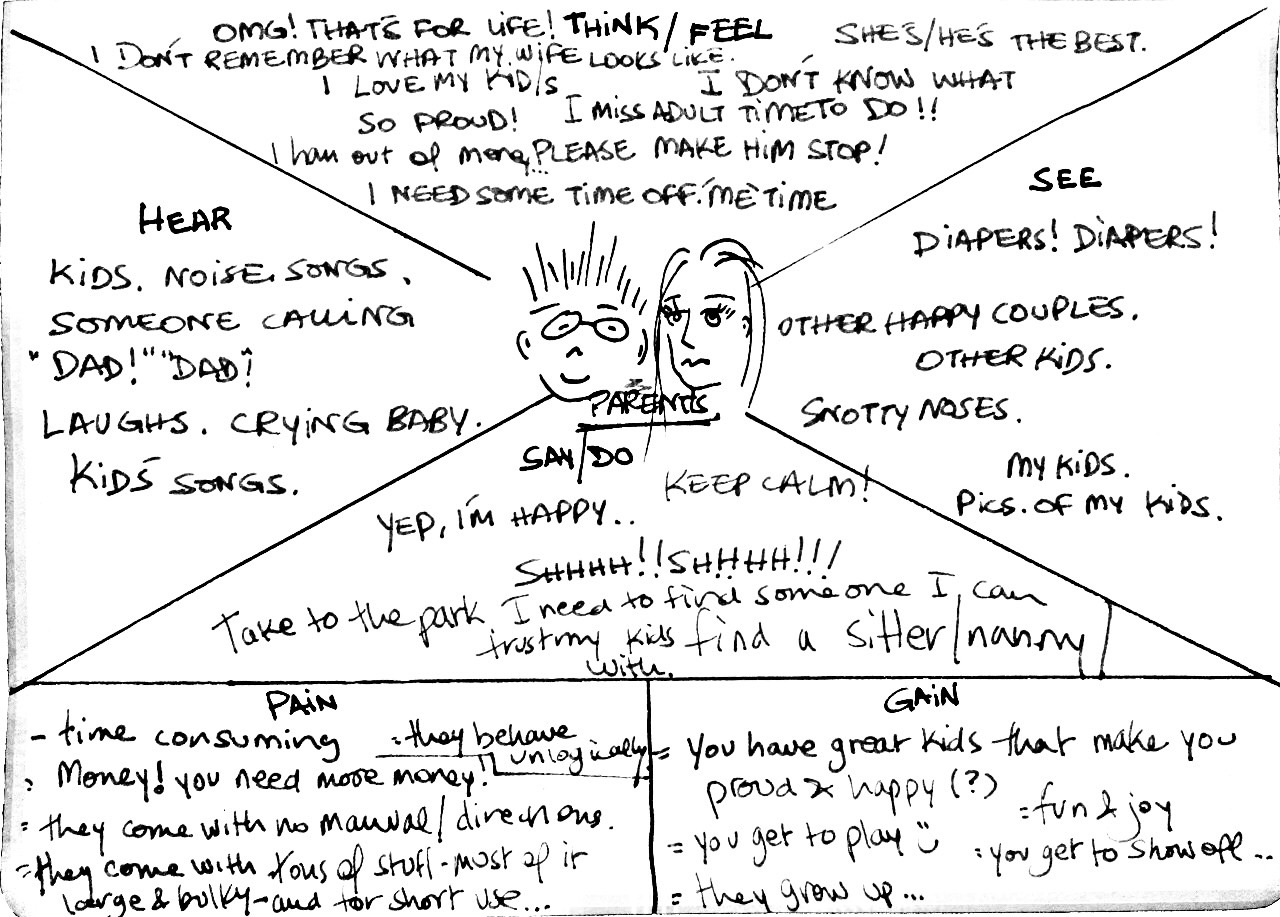 OMG! THAT'S FOR LIFE! THINK/FEEL
SHE'S/HE'S THE BEST.
I DON'T REMEMBER WHAT MY WIFE LOOKS LIKE.
I LOVE MY KID/S
I DON'T KNOW WHAT TO DO!!
SO PROUD!
I MISS ADULT TIME
I ran out of money...
PLEASE MAKE HIM STOP!
I NEED SOME TIME OFF. "ME" TIME
HEAR
KIDS. NOISE. SONGS.
SOMEONE CALLING
"DAD!" "DAD!"
LAUGHS. CRYING BABY.
KIDS SONGS.
SEE
DIAPERS! DIAPERS!
OTHER HAPPY COUPLES.
OTHER KIDS.
SNOTTY NOSES.
MY KIDS.
PICS. OF MY KIDS.
PARENTS
SAY/DO
KEEP CALM!
YEP, I'M HAPPY..
SHHHH!! SHHHH!!!
Take to the park.
I need to find someone I can
trust my kids
with.
find a sitter/nanny
PAIN
- time consuming
= they behave
unlogically
, Money! you need more money!
= they come with no manual/directions.
= they come with tons of stuff - most of it
large & bulky - and for short use...
GAIN
= you have great kids that make you
proud & happy (?)
= fun & joy
= you get to play
= you get to show off...
= they grow up...